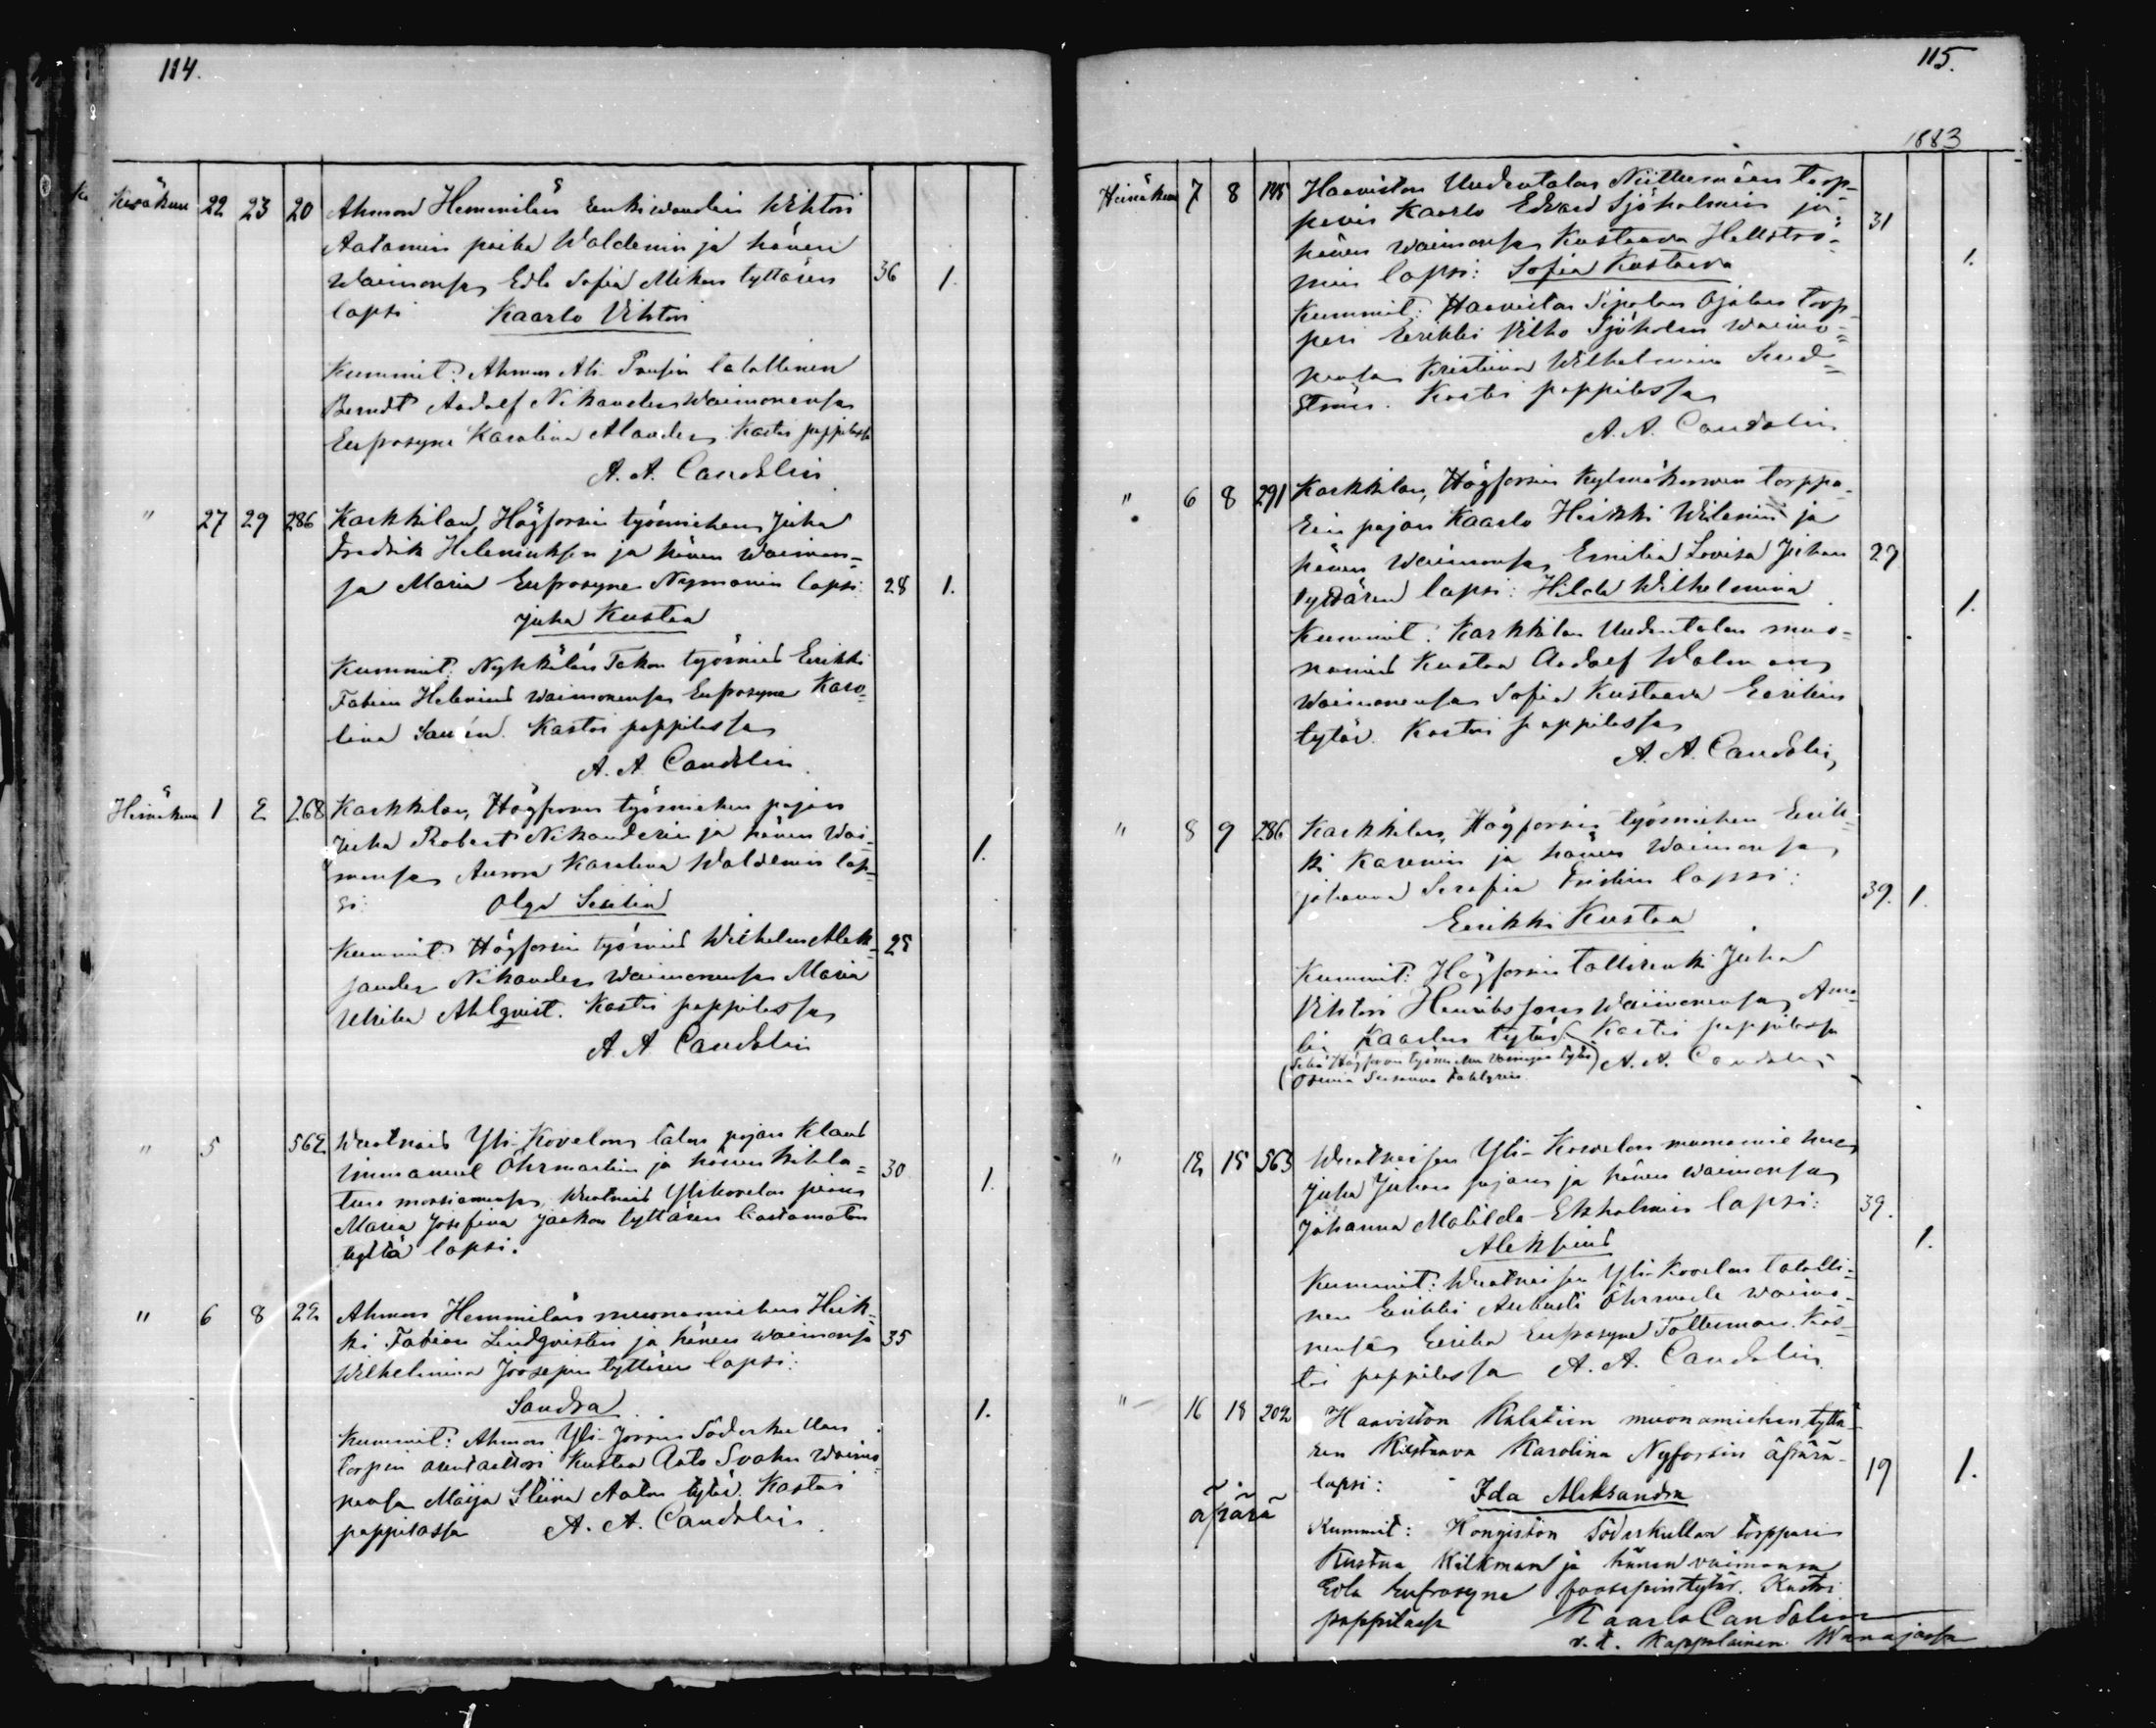 114.
Kesäkuu 22 23 20 Ahmon Hemmilän Vihtori
Aatamin pojan Waldenin ja hänen
waimonsa Edla Sofia Mikon tyttären 36 1.
lapsi Kaarlo Vihtori
Kummit: Ahmon Ali- talollinen
Berndt Aadolf Nikander waimonensa
Eufrosyne Karolina Alander. Kastoi pappilassa
A. A. Candolin
" 27 29 286 Karkkilan, Högforsin työmiehen Juha
Fredrik Heleniuksen ja hänen waimon-
sa Maria Eufrosyne Nymanin lapsi: 28 1.
Juha Kustaa
Kummit: Nyhkälän Takon työmies Eerikki
Fabian Helenius waimonensa Eufrosyne Karo-
lina Kastoi pappilassa
A. A. Candolin.
Heinäkuu 1 2 268 Karkkilan, Högforsin työmiehen pojan
Juha Robert Nikanderin ja hänen wai-
monsa Aurora Karolina Waldenin lap- 1.
si: Olga Sesilia
Kummit: Högforsin työmies Wilhelm Alek- 28
sander Nikander waimonensa Maria
Ulrika Ahlqvist. Kastoi pappilassa
A. A. Candolin
" 5 562 Wuotnais Yli-Kovelan talon pojan Klaus
Immanuel Öhrmarkin ja hänen kihla- 30
tun morsiamensa, Wuotnais Ylikovelan piian 1.
Maria Josefina Jaakon tyttären kastamaton
tyttö lapsi.
" 6 8 22 Ahmon Hemmilän muonamiehen Heik-
ki Fabian Lindqvistin ja hänen waimonsa 35
Wilhelmina Joosepin tyttären lapsi:
Sandra. 1.
Kummit: Ahmon Yli-Jossin Söderkullan
torpan arentaattori Kustaa Aato Svahn waimo-
nensa Maija Stiina Aatun tytär. Kastoi
pappilassa A. A. Candolin.
115.
1883
Heinäkuu 7 8 Haaviston Uudentalon Niittumäen torp-
parin Kaarlo Edvard Sjöholmin ja 31
hänen waimonsa Kustaava Hellströ- 1.
min lapsi: Sofia Kustaava
Kummit: Haaviston Sipolan Ojalan torp-
pari Eerikki Vilho Sjöholm waimo-
nensa Kristiina Wilhelmina Sund-
ström. Kastoi pappilassa
A. A. Candolin
" 6 8 291 Karkkilan, Högforsin torppa-
rin pojan Kaarlo Heikki Wileni ja
hänen waimonsa Emilia Lovisa Juhan 27
tyttären lapsi: Hilda Wilhelmina 1.
Kummit: Karkkilan Uudentalon muo-
namies Kustaa Aadolf Walman
waimonensa Sofia Kustaava Eerikin
tytär. Kastoi pappilassa
A. A. Candolin
" 8 9 286 Karkkilan, Högforsin työmiehen Eerik-
ki Karenin ja hänen waimonsa
Johanna Serafia lapsi: 39. 1.
Eerikki Kustaa
Kummit: Högforsin tallirenki Juha
Vihtori Henriksson waimonensa Ama-
lia Kaarlon tytär. Kastoi pappilassa
(Sekä Högforsin työmiehen tytär) A. A. Candolin
Susanna
" 12 15 563 Wuotnaisten Yli-Kovelan muonamiehen
Juha Juhan pojan ja hänen waimonsa
Johanna Matilda Ekholmin lapsi: 39.
Aleksius 1.
Kummit: Wuotnaisten Yli-Kovelan talolli-
nen Eerikki Aukusti Öhrmark waimo-
nensa Eerika Eufrosyne Tallerman. Kas-
toi pappilassa A. A. Candolin.
" 16 18 202 Haaviston Kulatien muonamiehen tyttä-
ren Kustaava Karolina Nyforsin äpärä- 19 1.
lapsi: Ida Aleksandra
äpärä
Kummit: Hongiston Söderkullan torppari
Kustaa Kilkman ja hänen vaimonsa
Edla Eufrosyne Joosepintytär. Kastoi
pappilassa Kaarlo Candolin
v. t. Kappalainen Wanajassa